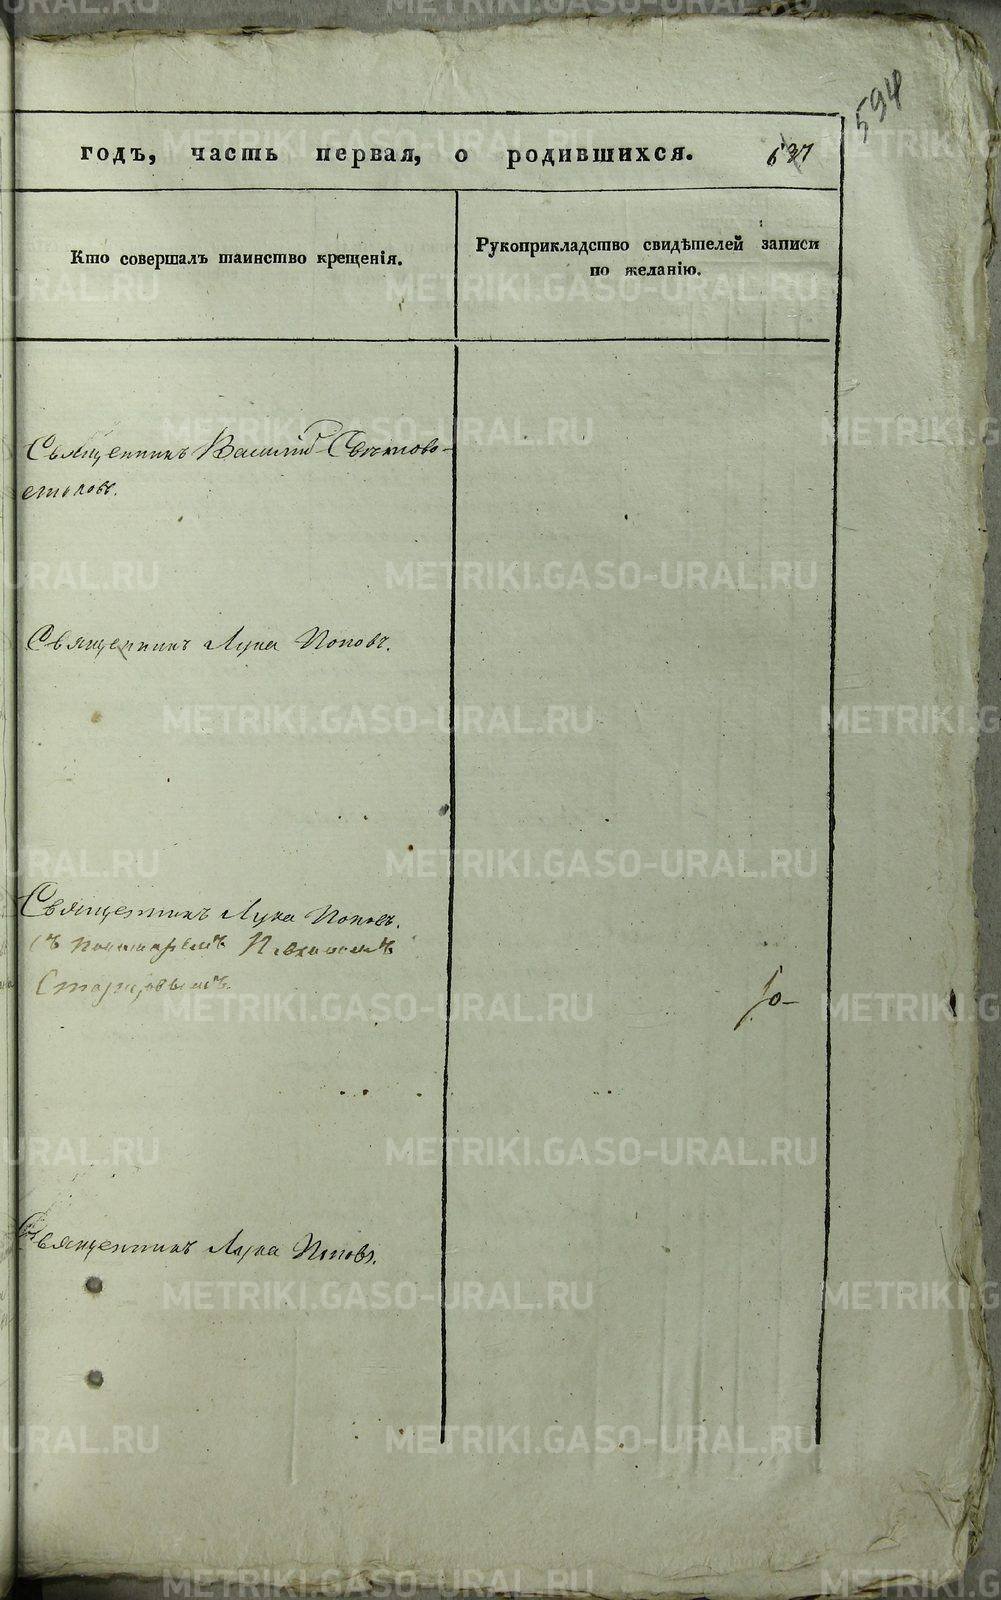 594
годъ, часть первая, о родившихся.
637
Кто совершалъ таинство крещенія.
Рукоприкладство свидѣтелей записи
по желанію.
Священникъ Василій
Священникъ Лука Поповъ.
Священникъ Лука Поповъ.
съ
Старцовымъ.
Священникъ Лука Поповъ.
METRIKI.GASO-URAL.RU